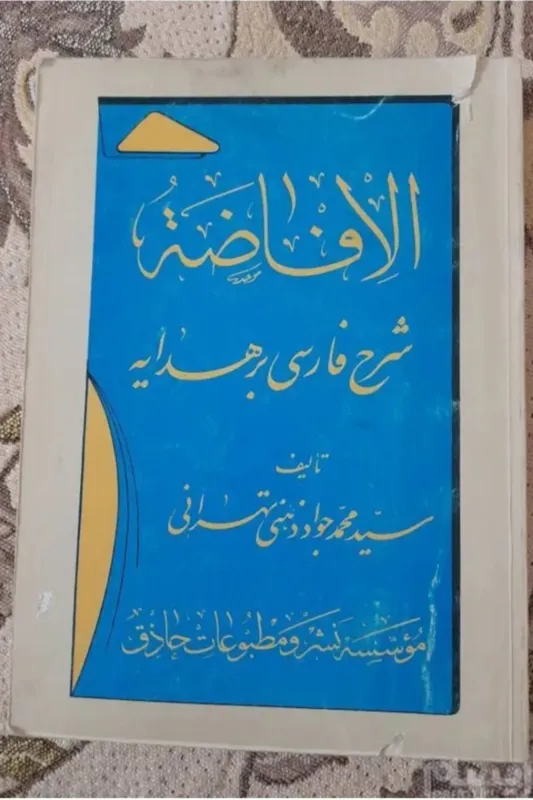 الإفاضَةُ
شرح فارسی بر هدایه
تألیف
سیّد محمّد جواد ذهنی تهرانی
مؤسّسه نشر و مطبوعات حاذق